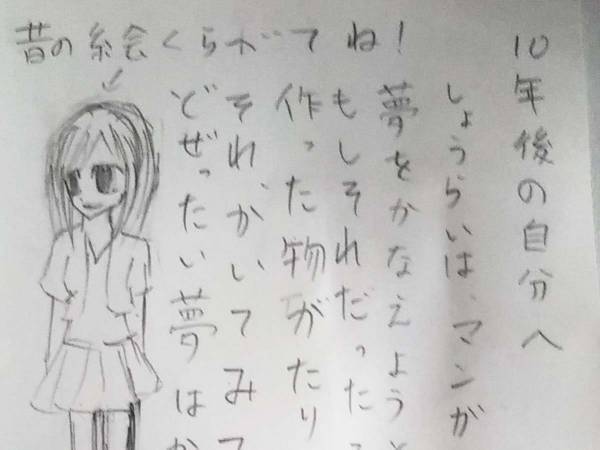 昔の絵くらべてね！
10年後の自分へ
しょうらいは、マンガ
夢をかなえようと
もしそれだった
作った物がたり
それ、かいてみて
どぜったい夢はか